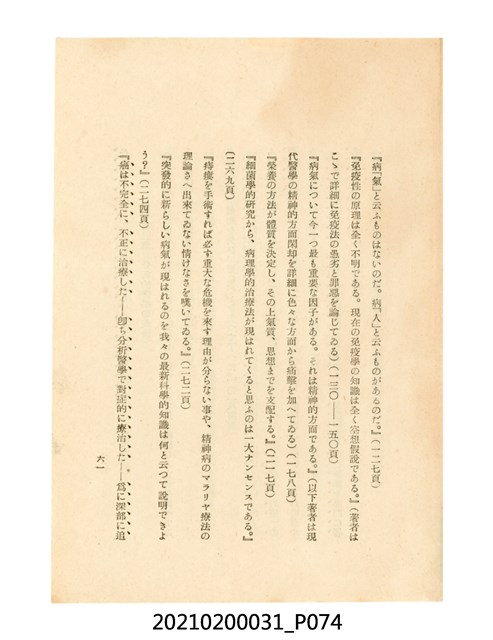 『病「氣」と云ふものはないのだ。病「人」と云ふものがあるのだ。』(一二七頁)
『免疫性の原理は全く不明である。現在の免疫學の知識は全く空想假說である。』(著者は
こゝで詳細に免疫法の愚劣と罪惡を論じてゐる)(一三〇――一五〇頁)
『病氣について今一つ最も重要な因子がある。それは精神的方面である。』(以下著者は現
代醫學の精神的方面閑却を詳細に色々な方面から痛擊を加へてゐる)(一七八頁)
『榮養の方法が體質を決定し、その上氣質、思想までを支配する。』(二一七頁)
『細菌學的研究から、病理學的治療法が現はれてくると思ふのは一大ナンセンスである。』
(二六九頁)
『痔瘻を手術すれば必ず重大な危機を來す理由が分らない事や、精神病のマラリヤ療法の
理論さへ出來てゐない情けなさを嘆いてゐる。』(二七二頁)
『突發的に新らしい病氣が現はれるのを我々の最新科學的知識は何と云つて說明できよ
う?』(二七四頁)
『癌は不完全に、不正に治療した――卽ち分析醫學で對症的に療治した――。爲に深部に追
六一
20210200031_P074